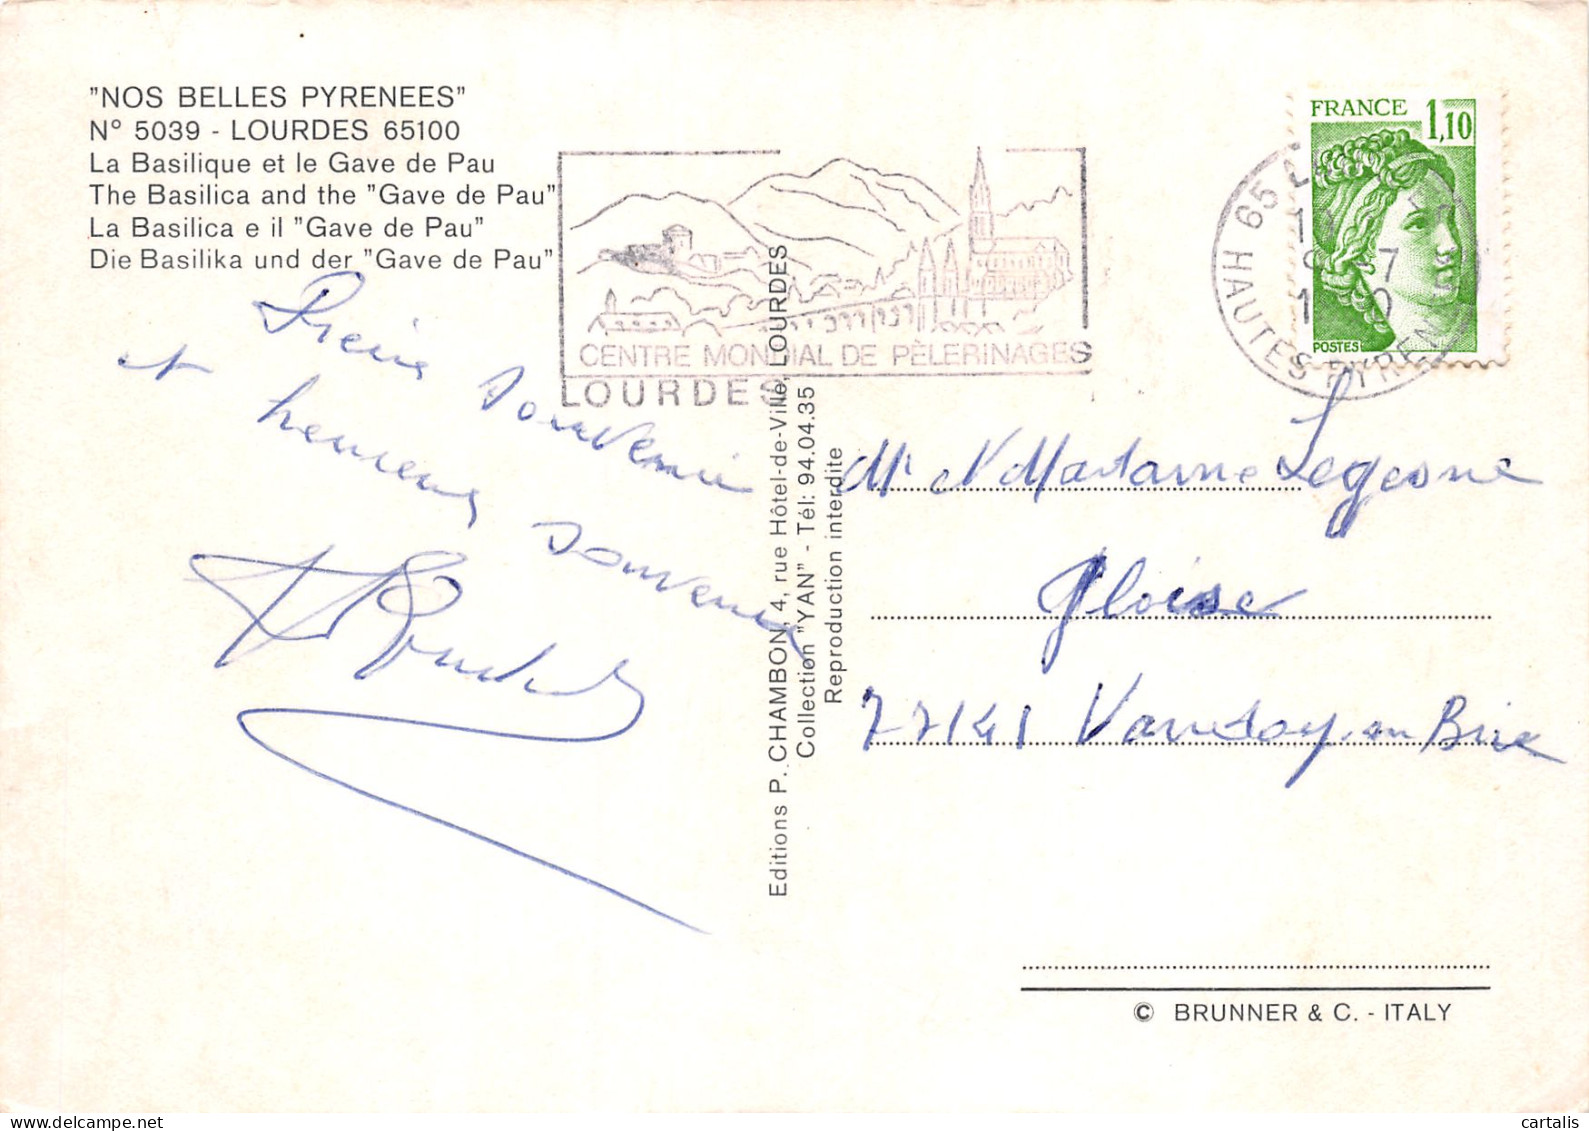 "NOS BELLES PYRENEES"
N° 5039 - LOURDES 65100
La Basilique et le Gave de Pau
The Basilica and the "Gave de Pau"
La Basilica e il "Gave de Pau"
Die Basilika und der "Gave de Pau"
CENTRE MONDIAL DE PÈLERINAGES
LOURDES
FRANCE 1,10
POSTES
65
HAUTES PYRENEES
souvenir
et
souvenir
Editions P. CHAMBON, 4, rue Hôtel-de-Ville, LOURDES
Collection "YAN" - Tél: 94.04.35
Reproduction interdite
Mr et Madame
77141 Vaudoy-en Brie
© BRUNNER & C. - ITALY
cartalis